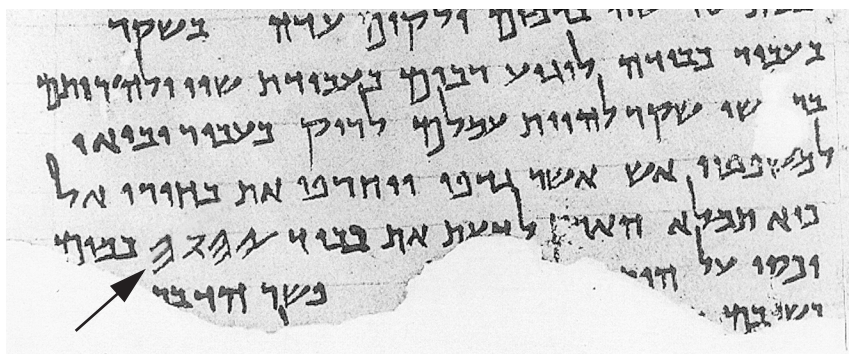 בדמים ולקים עדה בשקר
בעבור כבודה לוגיע רבים בעבודת שוו ולהרותם
שקר להיות עמלם לריק בעבור יבואו
למשפטי אש אשר גדפו ויחרפו את בחירי אל
כיא תמלא הארץ לדעת את כבוד 𐤉𐤄𐤅𐤄 כמים
יכסו על פשר הדבר